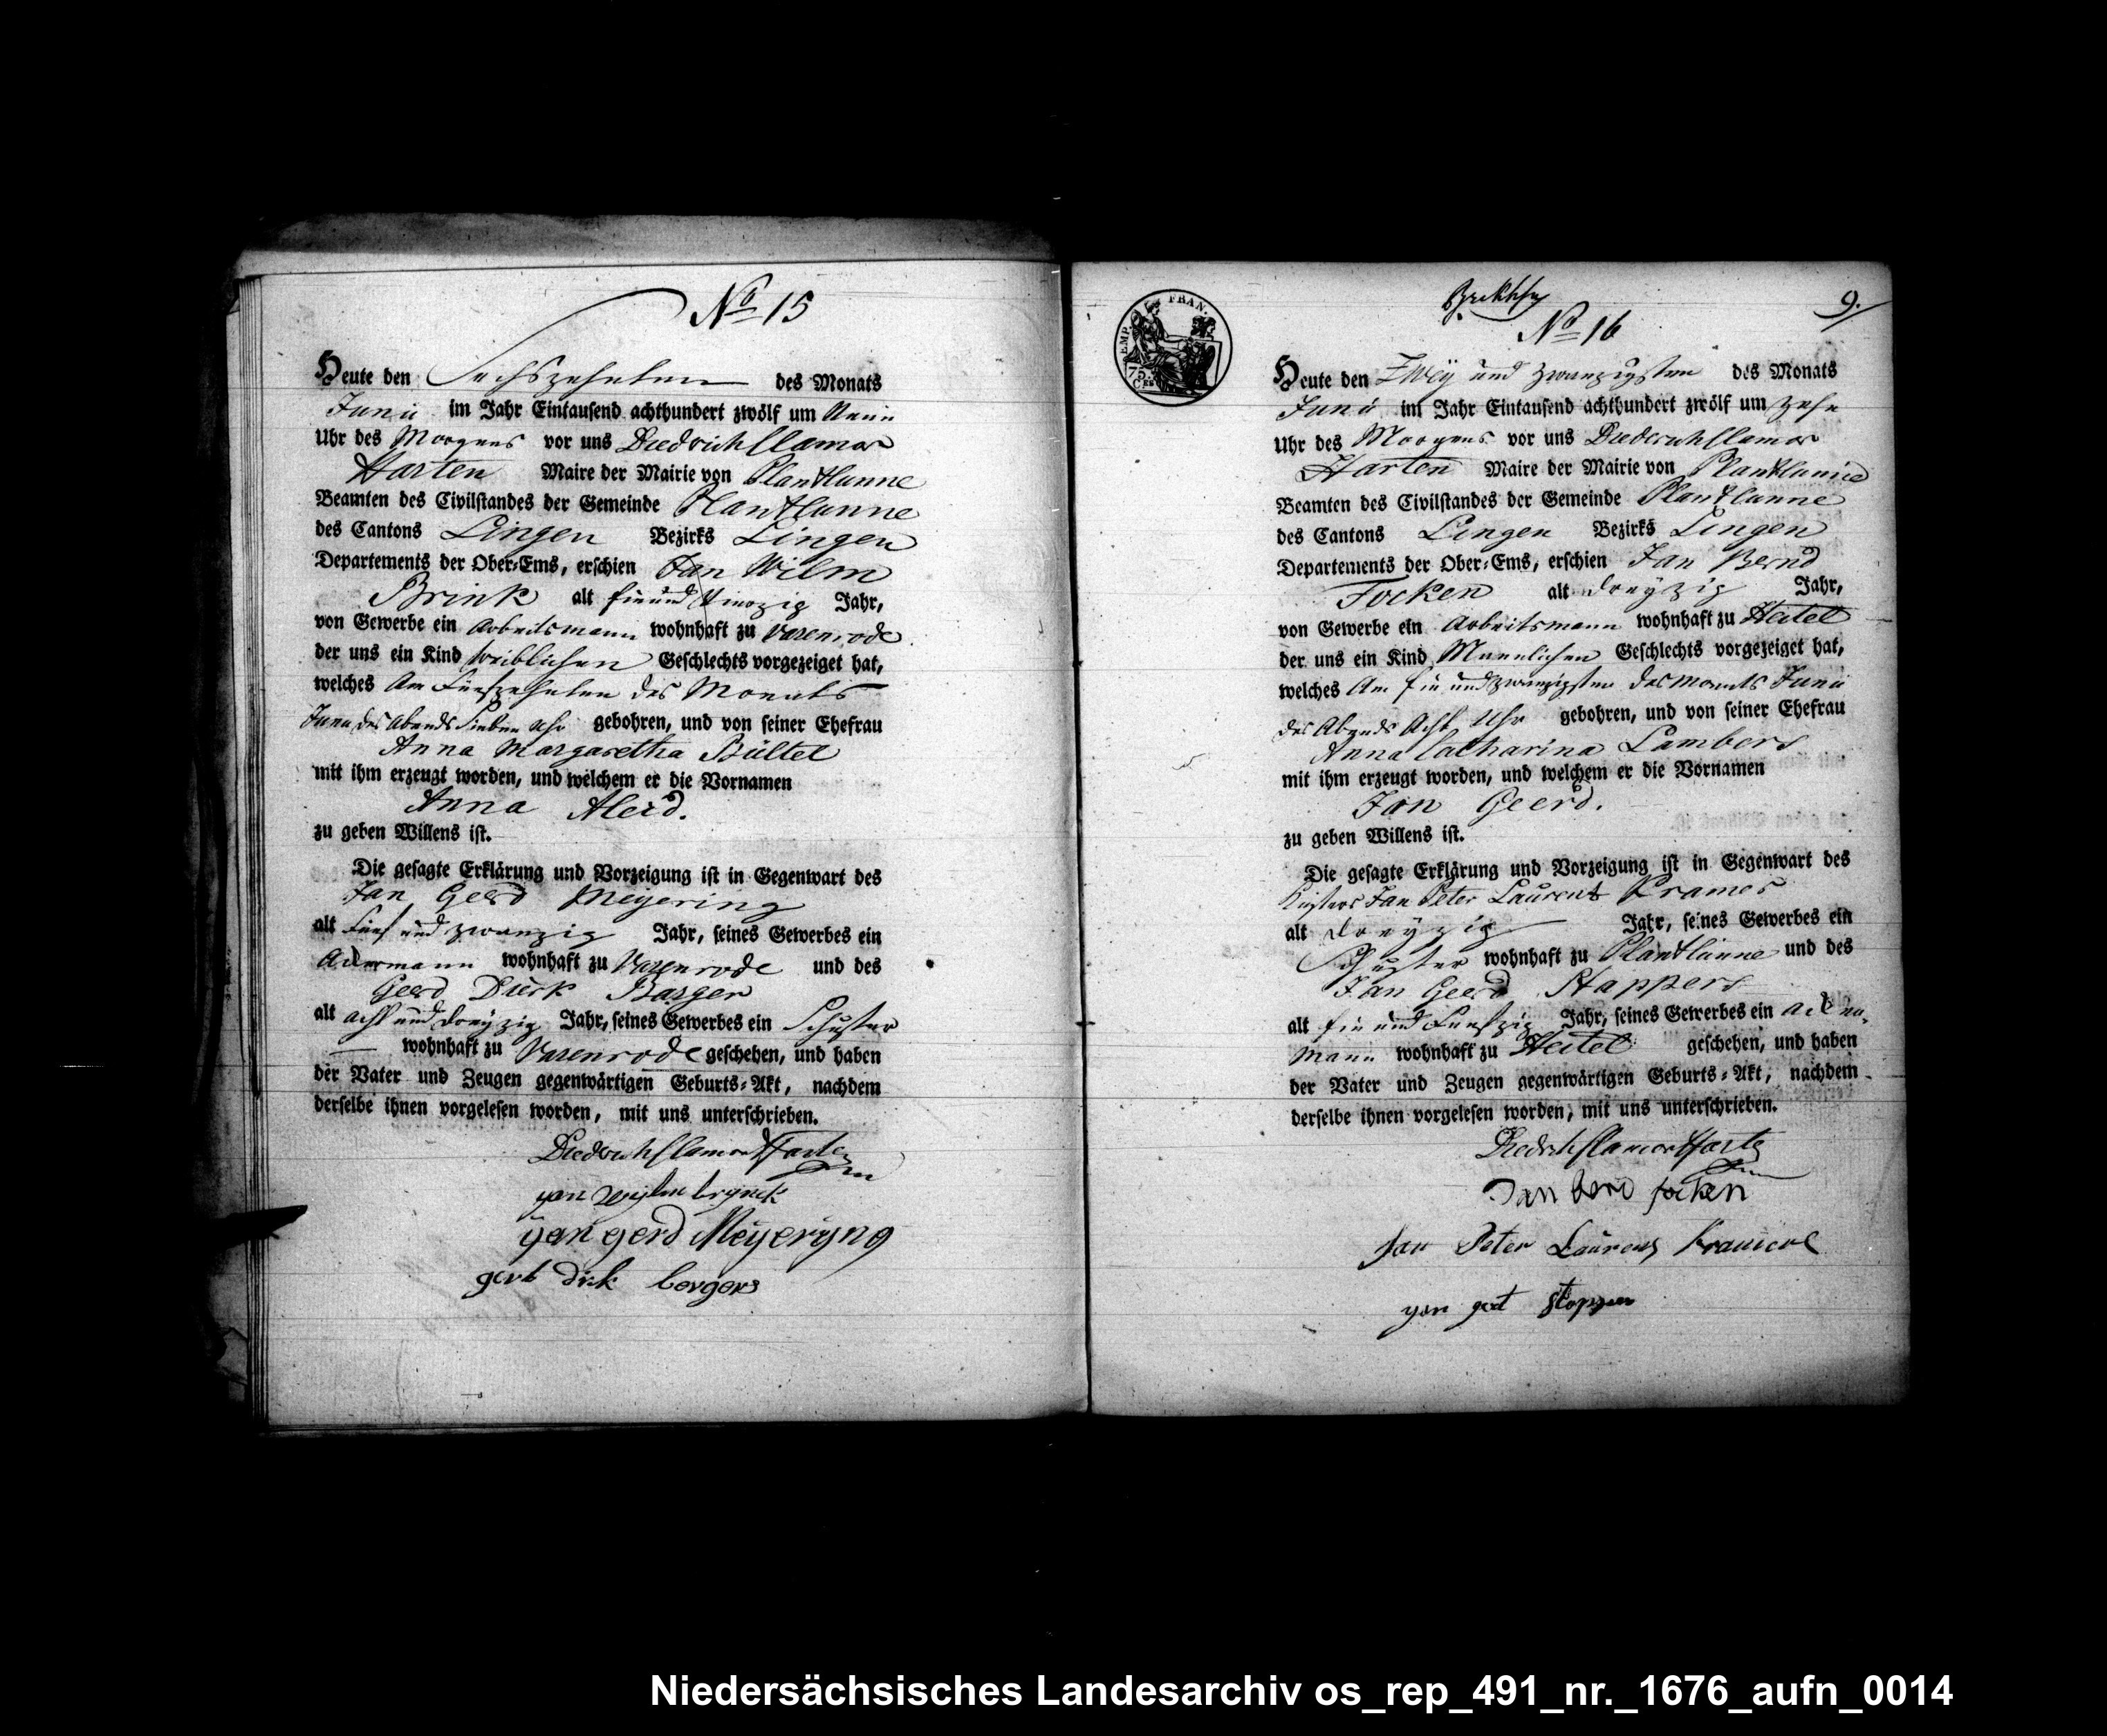 No 15
Heute den Sechszehnten des Monats
Junii im Jahr Eintausend achthundert zwölf um Neun
Uhr des Morgens vor uns Diedrich Clamor
Harten Maire der Mairie von Plantlunne
Beamten des Civilstandes der Gemeinde Plantlunne
des Cantons Lingen Bezirks Lingen
Departements der Ober-Ems, erschien Jan Wilm
Brink alt ein und Vierzig Jahr,
von Gewerbe ein Arbeitsmann wohnhaft zu Varenrode
der uns ein Kind weiblichen Geschlechts vorgezeiget hat,
welches Am Funfzehnten des Monats
Junii des Abends Sieben Uhr gebohren, und von seiner Ehefrau
Anna Margaretha Bültel
mit ihm erzeugt worden, und welchem er die Vornamen
Anna Aleid.
zu geben Willens ist.
Die gesagte Erklärung und Vorzeigung ist in Gegenwart des
Jan Geerd Meyering
alt Fünf und zwanzig Jahr, seines Gewerbes ein
Ackermann wohnhaft zu Varenrode und des
Geerd Dierk Barger
alt acht und dreyzig Jahr, seines Gewerbes ein Schuster
wohnhaft zu Varenrode geschehen, und haben
der Vater und Zeugen gegenwärtigen Geburts-Akt, nachdem
derselbe ihnen vorgelesen worden, mit uns unterschrieben.
Diedrich Clamor Harten
yan wylm brynck
yan gerd Meyeryng
gerb dirk bergers
EMP. FRAN.
75
CES
9.
No 16
Heute den Zwey und zwanzigsten des Monats
Junii im Jahr Eintausend achthundert zwölf um zehn
Uhr des Morgens vor uns Diederich Clamor
Harten Maire der Mairie von Plantlunne
Beamten des Civilstandes der Gemeinde Plantlunne
des Cantons Lingen Bezirks Lingen
Departements der Ober-Ems, erschien Jan Bernd
Focken alt dreyzig Jahr,
von Gewerbe ein Arbeitsmann wohnhaft zu Heitel
der uns ein Kind Mannlichen Geschlechts vorgezeiget hat,
welches Am ein und zwanzigsten des Monats Junii
des Abends Acht Uhr gebohren, und von seiner Ehefrau
Anna Catharina Lambers
mit ihm erzeugt worden, und welchem er die Vornamen
Jan Geerd.
zu geben Willens ist.
Die gesagte Erklärung und Vorzeigung ist in Gegenwart des
Küsters Jan Peter Laurens Kramer
alt dreyzig Jahr, seines Gewerbes ein
Schuster wohnhaft zu Plantlünne und des
Jan Geerd Stappers
alt ein und Funfzig Jahr, seines Gewerbes ein Acker-
mann wohnhaft zu Heitel geschehen, und haben
der Vater und Zeugen gegenwärtigen Geburts-Akt, nachdem
derselbe ihnen vorgelesen worden, mit uns unterschrieben.
Diedrich Clamor Harten
Jan bernd focken
Jan Peter Laurens Kramer
yan gerd stappers
Niedersächsisches Landesarchiv os_rep_491_nr._1676_aufn_0014